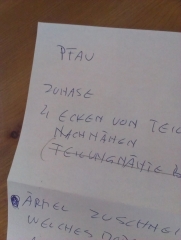 PFAU
ZUHASE
4 ECKEN VON TEIL
NACHNÄHEN
(TEILUNGNÄHTE
ÄRMEL ZUSCHNEI
WELCHES